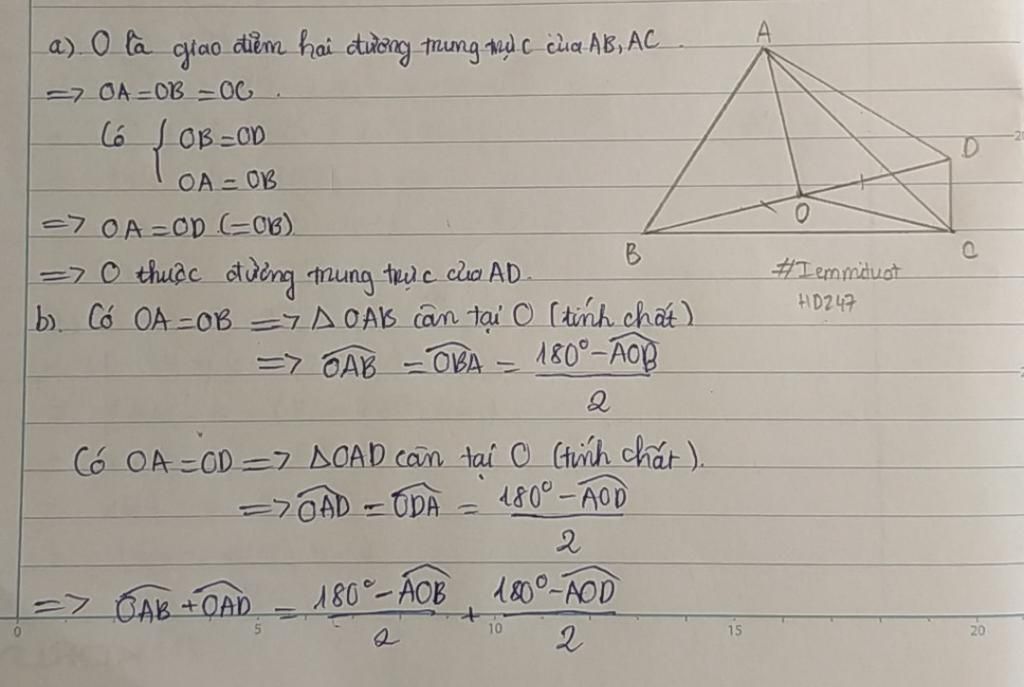 a). O là giao điểm hai đường trung trực của AB, AC.
=> OA = OB = OC.
Có { OB = OD
OA = OB
=> OA = OD (=OB)
=> O thuộc đường trung trực của AD.
b). Có OA = OB => △OAB cân tại O (tính chất)
=> \widehat{OAB} = \widehat{OBA} = \frac{180° - \widehat{AOB}}{2}
Có OA = OD => △OAD cân tại O (tính chất).
=> \widehat{OAD} = \widehat{ODA} = \frac{180° - \widehat{AOD}}{2}
=> \widehat{OAB} + \widehat{OAD} = \frac{180° - \widehat{AOB}}{2} + \frac{180° - \widehat{AOD}}{2}
A
D
O
B
C
#Iemmiduot
HD247
0 5 10 15 20